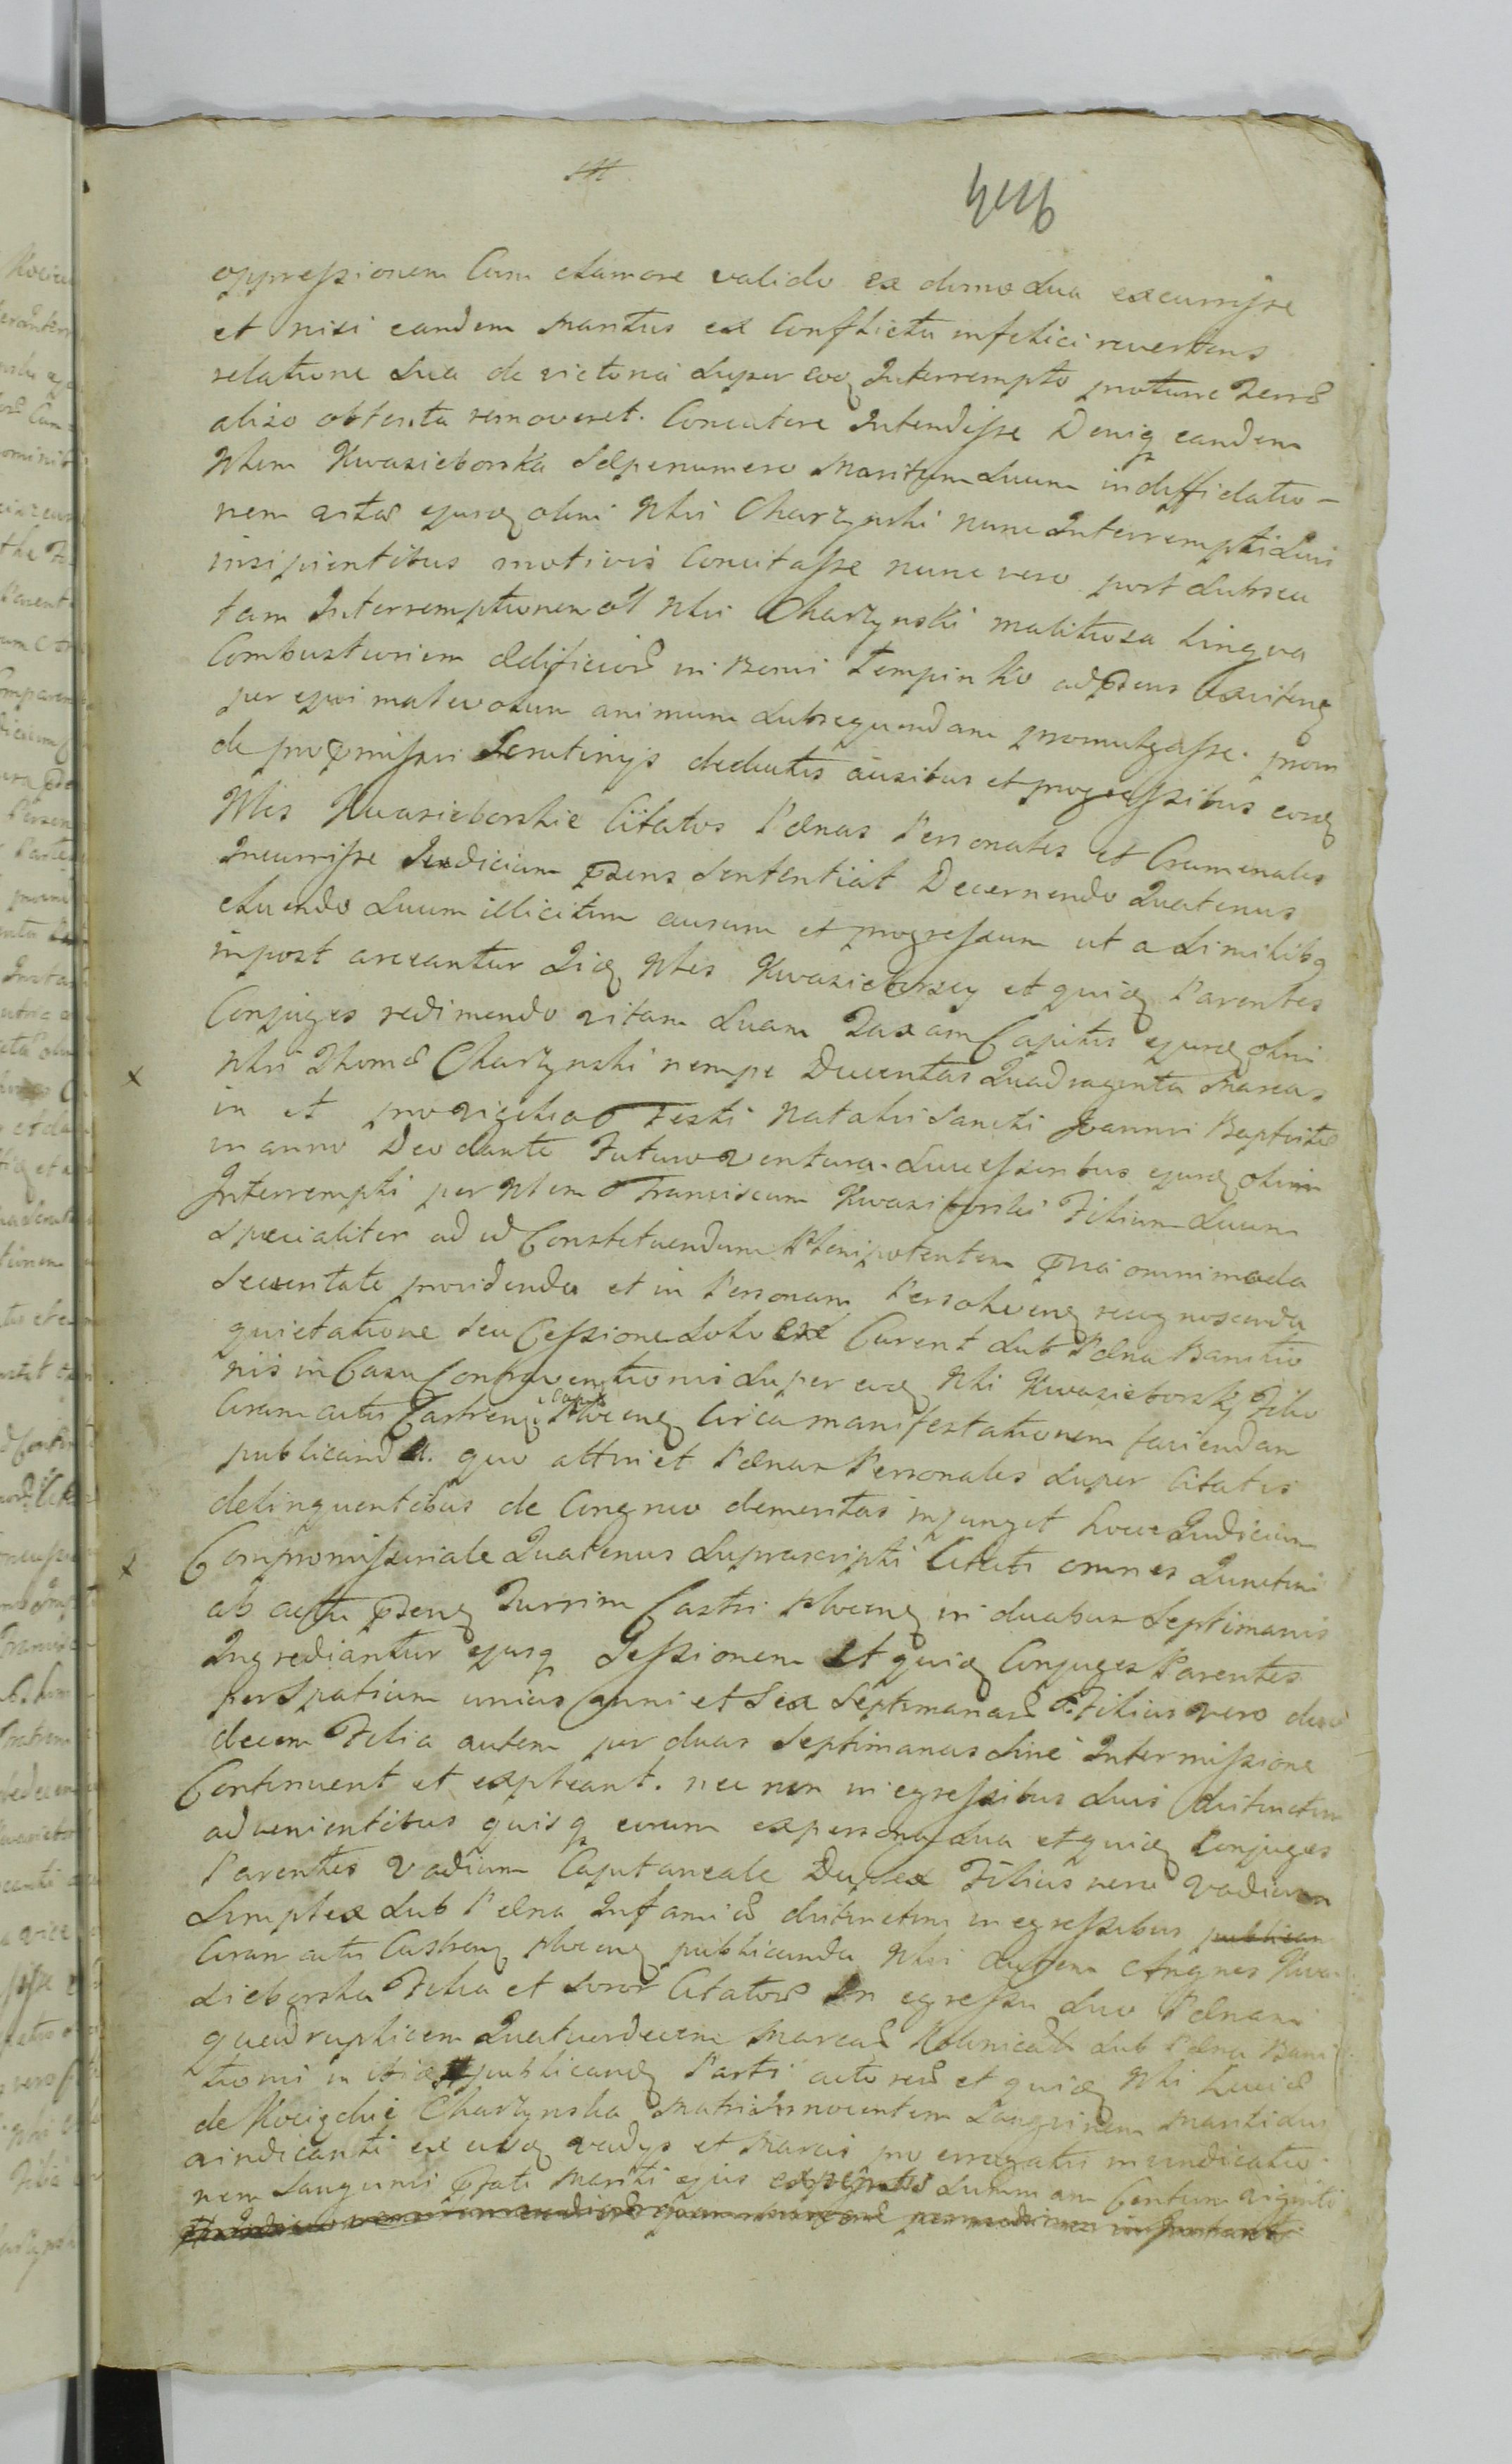 446
oppressionem Cum clamore valido ex domo sua excurrisse
et nisi eandem Maritus ex Conflictu infelici revertens
relatione sua de victoria super eoq Interrempto protunc
alias obtenta removeret. Concutere Intendisse Deniq eandem
Nlem Kwasieborska Sæpenumero Maritum suum in diffidatio-
nem vitæ ejusq olim Nlis Charzynski nunc Interrempti suis
insipientibus motivis Concitasse nunc vero post subsecu
tam Interremptionem Nlis Charzynski malitiosa Lingva
Combustionem ædificior in Bonis Lempinko
per ejus malevolum animum subsequendam promulgasse.
de præmissis Scrutinijs deductis ausibus et progressibus eosq
Nles Kwasieborskie Citatos Pænas Personales et Criminales
Incurrisse Judicium pnens sententiat Decernendo Quatenus
eluendo suum illicitum ausum et progressum ut a similibq
inpost arceantur Iiq Nles Kwasieborscy et quiq Parentes
Conjuges redimendo vitam suam Taxam Capitis ejusq olim
x Nlis Thomæ Charzynski nempe Ducentas Quadraginta Marcas
in et pro vigilia Festi Natalis Sancti Joannis Baptistæ
in anno Deo dante Futuro ventura. Successoribus ejusq olim
Interrempti per Nlem Franciscum Kwasiborski Filium suum
specialiter ad id Constituendum Plenipotentem omnimoda
securitate providenda et in Personam Persolvenq recognoscenda
quietatione seu Cessione solvere Curent sub Pæna Bannitio
nis in Casu Contraventionis super eoq Nli Kwasieborskj Filio
Coram actis Castrens Capit Plocenq Circa manifestationem faciendam
publicanda. quo attinet Pænas Personales super Citatis
delinquentibus de Congruo demeritas injunget hocce Judicium
x Compromissoriale Quatenus suprascripti Citati omnes
ab actu pnenq Turrim Castri Plocenq in duabus Septimanis
Ingrediantur ejusq Sessionem Et quiq Conjuges Parentes
per Spatium unius anni et Sex Septimanar Filius vero duo
decem Filia autem per duas Septimanas sine Intermissione
Continuent et expleant. nec non in egressibus suis distinctim
advenientibus quisq eorum ex persona sua et quiq Conjuges
Parentes Vadium Capitaneale Duplex Filius vero Vadium
Simplex sub Pæna Infamiæ distinctim in egressibus publican
Coram actis Castrenq Plocenq publicanda Nlis autem Angnes Kwa
sieborska Filia et Soror Citator In egressu suo Pænam
quadruplicem Quatuordecem Marcar sub Pæna Banni
tionis in publicanq Parti actoreæ et quiq Nli Luciæ
de Charzynska Innocentem Sangvinem Mariti sui
vindicanti ex vadys et Marcis pro errogatis in vindicatio
nem Sanguinis pfati Mariti ejus expensis Summam Centum viginti